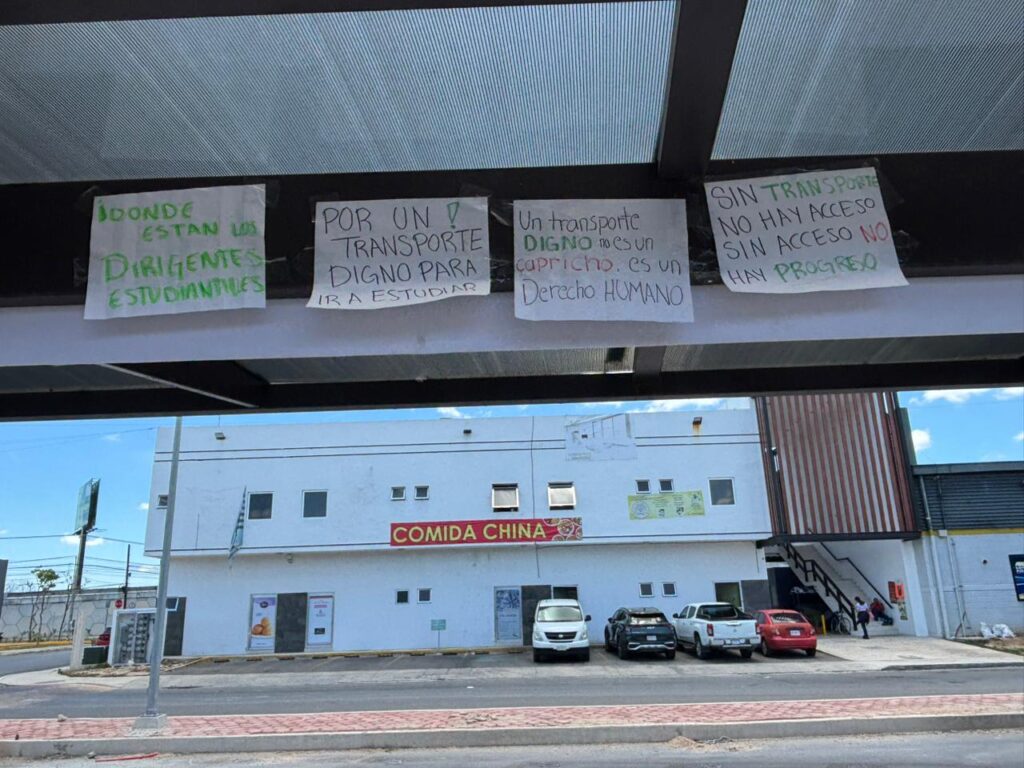 ¡DONDE
ESTAN LOS
DIRIGENTES
ESTUDIANTILES
POR UN !
TRANSPORTE
DIGNO PARA
IR A ESTUDIAR
Un transporte
DIGNO no es un
capricho. es un
Derecho HUMANO
SIN TRANSPORTE
NO HAY ACCESO
SIN ACCESO NO
HAY PROGRESO
COMIDA CHINA